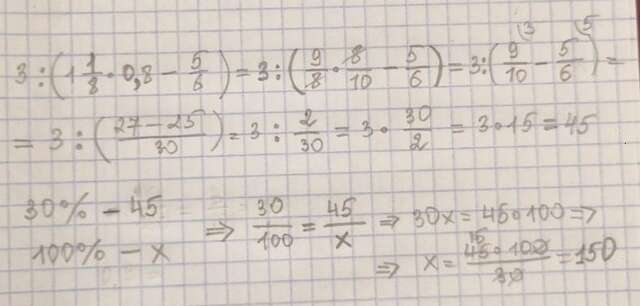 3 : (1 1/8 · 0,8 − 5/6) = 3 : (9/8 · 8/10 − 5/6) = 3 : (9/10 (3 − 5/6 (5) =
= 3 : (27 − 25/30) = 3 : 2/30 = 3 · 30/2 = 3 · 15 = 45
30% − 45 ⇒ 30/100 = 45/x ⇒ 30x = 45 · 100 ⇒
100% − x ⇒ x = 45 · 100/30 = 150